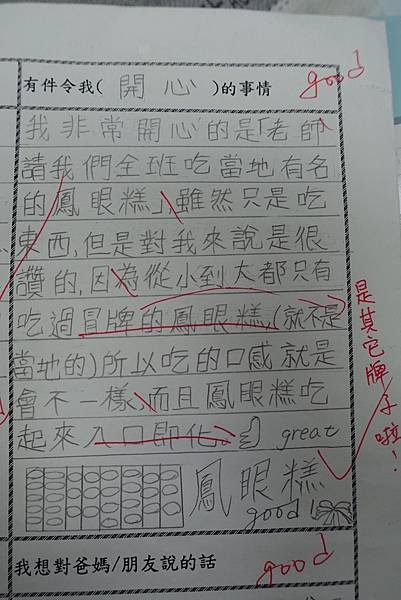 有件令我( 開心 )的事情 good
我非常開心的是「老師
請我們全班吃當地有名
的鳳眼糕」,雖然只是吃
東西,但是對我來說是很
讚的,因為從小到大都只有
吃過冒牌的鳳眼糕(就不是
當地的)所以吃的口感就是
會不一樣,而且鳳眼糕吃
起來入口即化。great
是其它牌子啦!
鳳眼糕
good!
我想對爸媽/朋友說的話 good